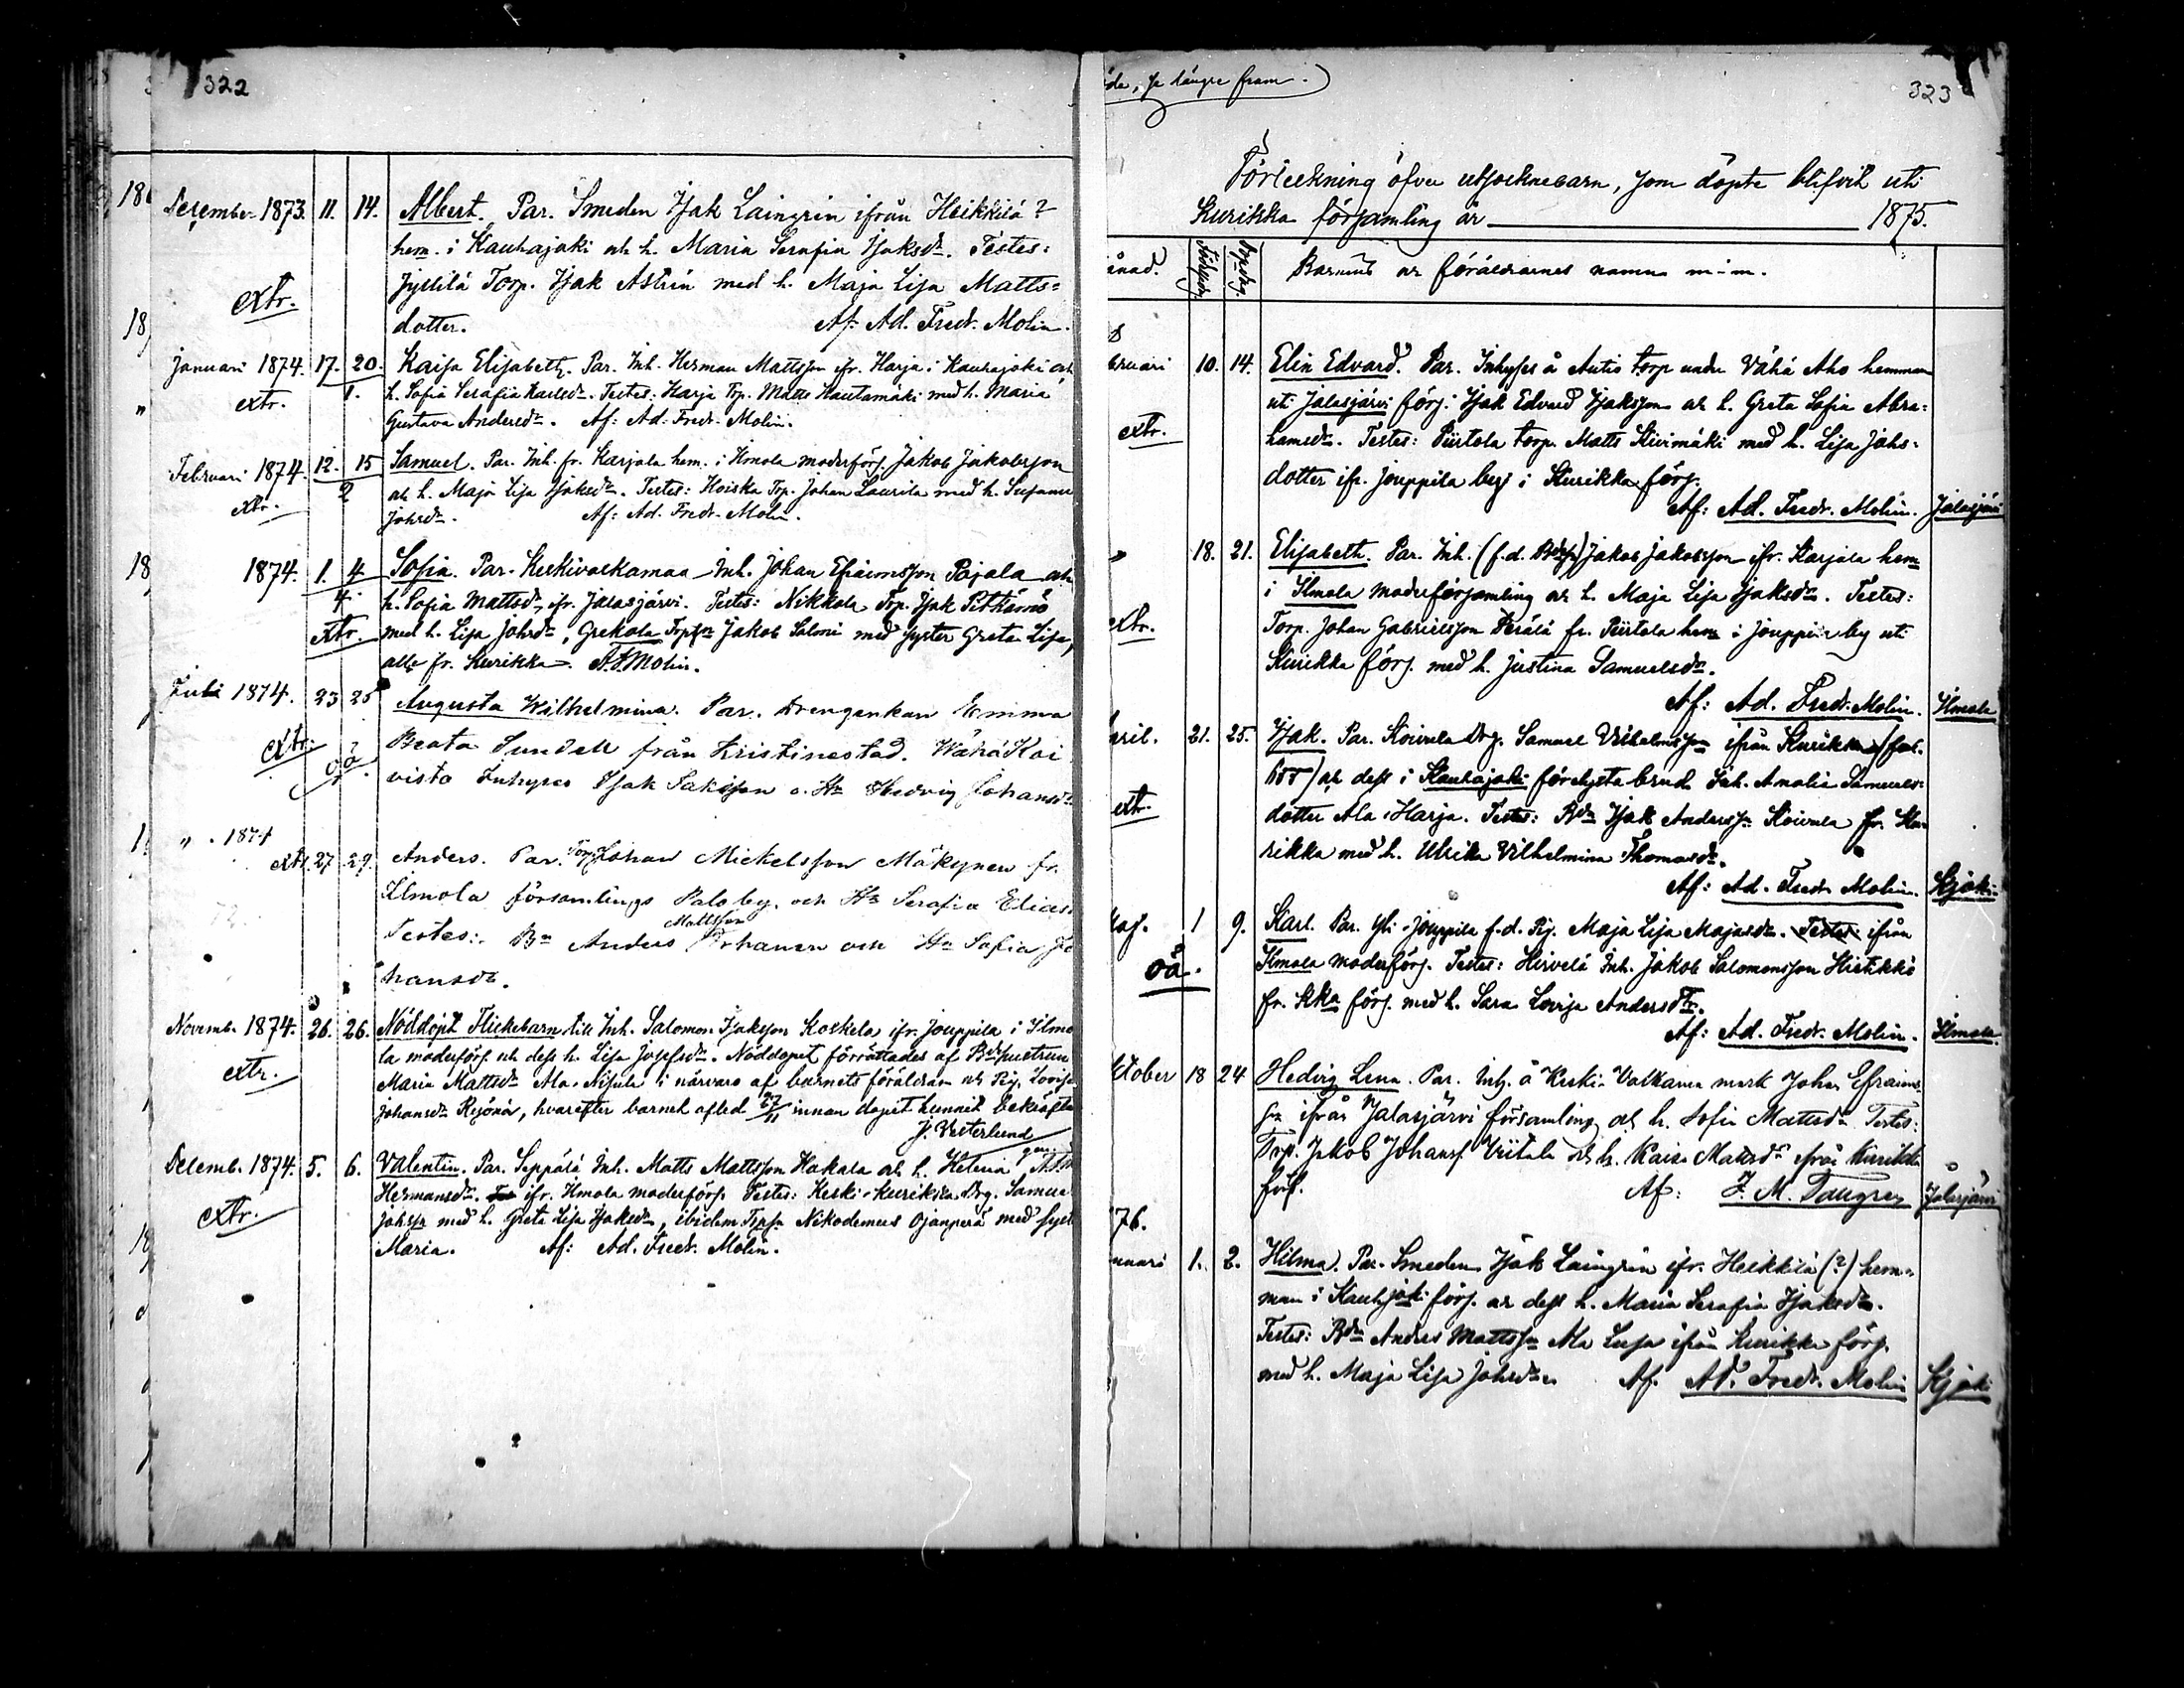 322
Dezember 1873. 11. 14. Albert. Par. Smeden Isak Laingrin ifrån Heikkilä?
hem. i Kauhajoki och h. Maria Serafia Isaksdr. Testes:
Jyllilä Torp. Isak Aström med h. Maja Lisa Matts=
extr.
dotter. Af: Ad. Fredr. Molin.
Januari 1874. 17. 20. Kaisa Elisabeth. Par. Inh. Herman Mattsson ifr. Harja i Kauhajoki och
" extr. 1. h. Sofia Serafia Karlsdr. Testes: Harja Trp. Matts Rautamäki med h. Maria
Gustava Andersdr. Af: Ad. Fredr. Molin.
Februari 1874. 12. 15 Samuel. Par. Inh. fr. Karjala hem. i Ilmola moderförs. Jakob Jakobsson
extr. 2 och h. Maja Lisa Isaksdr. Testes: Hoiska Trp. Johan Laurila med h. Susanna
Johsdr. Af: Ad. Fredr. Molin.
1874. 1. 4 Sofia. Par. Keskivalkamaa Inh. Johan Efraimsson Pajala och
4. h. Sofia Mattsdr, ifr. Jalasjärvi. Testes: Nikkola Trp. Isak Pitkämö
extr. med h. Lisa Johsdr, Grekola Trpsn Jakob Salomi med syster Greta Lisa,
alla fr. Kurikka. A.F. Molin.
Juli 1874. 23 25 Augusta Wilhelmina. Par. Drengenkan Emma
extr. oä? Beata Sundell från Kristinestad. Wähä Koi
visto Inhyses Isak Isaksson o. Hu Hedvig Johansdr
" . 1874
extr. 27 29. Anders. Par. Torp. Johan Mickelsson Mäkynen fr.
Ilmola församlings Palo by. och Hu Serafia Elias
Mattsson
Testes: Bn Anders och Hu Sofia Jo
hansdr.
Novemb. 1874. 26. 26. Nöddöpt Flickebarn till Inh. Salomon Isaksson Koskela ifr. Jouppila i Ilmo
la moderförs. och dess h. Lisa Josefsdr. Nöddopet förrättades af Bdehustrun
extr. Maria Mattsdr Ala-Nisula i närvaro af barnets föräldrar och Pig. Lovisa
Johansdr, hvarefter barnet afled 27/11 innan dopet hunnit bekräfta
J. Vesterlund
Decemb. 1874. 5. 6. Valentin. Par. Seppälä Inh. Matts Mattsson Hakala och h. Helena
Hermansdr. ifr. Ilmola moderförs. Testes: Keski-kurikka Drg. Samuel
extr. Johssn med h. Greta Lisa Isaksdr, ibidem Trpsn Nikodemus Ojanperä med syst
Maria. Af: Ad. Fredr. Molin.
da, se längre fram.)
323
Förteckning öfver utsocknebarn, som döpte blifvit uti
Kurikka församling år 1875.
ånad. Födelsedag Dopdag. Barnens och föräldrarnes namn m.m.
bruari 10. 14. Elin Edvard. Par. Inhyses å Autio torp under Vähä Aho hemman
uti Jalasjärvi förs. Isak Edvard Isaksson och h. Greta Sofia Abra=
extr. hamsdr. Testes: Piirtola torp. Matts Kivimäki med h. Lisa Johs=
dotter ifr. Jouppila by i Kurikka förs.
Af: Ad. Fredr. Molin. Jalasjärvi
" 18. 21. Elisabeth. Par. Inh. (f.d. Bdesn) Jakob Jakobsson ifr. Karjala hem
i Ilmola moderförsamling och h. Maja Lisa Isaksdr. Testes:
extr. Torp. Johan Gabrielsson Perälä fr. Piirtola hem i Jouppila by uti
Kurikka förs. med h. Justina Samuelsdr.
Af: Ad. Fredr. Molin. Ilmola
pril. 21. 25. Isak. Par. Koivula Drg. Samuel Vilhelmsson ifrån Kurikka
och dess i Kauhajoki förelysta brud Inh. Amalia Samuels=
extr. dotter Ala Harja. Testes: Bdn Isak Anderssn Koivula fr. Ku
rikka med h. Ulrika Vilhelmina Thomasdr.
Af: Ad. Fredr. Molin. Kjoki
Maj. 1 9. Karl. Par. Yli-Jouppila f.d. Pig. Maja Lisa Majasdr. Testes ifrån
oä. Ilmola moderförs. Testes: Hirvelä Inh. Jakob Salomonsson Histikkö
fr. Kka förs. med h. Sara Lovisa Andersdtr.
Af: Ad. Fredr. Molin. Ilmola.
ktober 18 24 Hedvig Lena. Par. Inh. å Keski-Valkama mark Johan Efraims
sn ifrån Jalasjärvi församling och h. Sofia Mattsdr Testes:
Trp. Jakob Johanss. Viitala och h. Kaisa Mattsdr ifrån Kurikka
förs. Af: J. M. Taugren Jalasjärvi
76.
nuari 1. 2. Hilma. Par. Smeden Isak Laingrin ifr. Heikkilä (?) hem=
man i Kauhjoki förs. och dess h. Maria Serafia Isaksdr.
Testes: Bdn Anders Mattssn Ala Luopa ifrån Kurikka förs.
med h. Maja Lisa Johsdr. Af. Ad. Fredr. Molin Kjoki